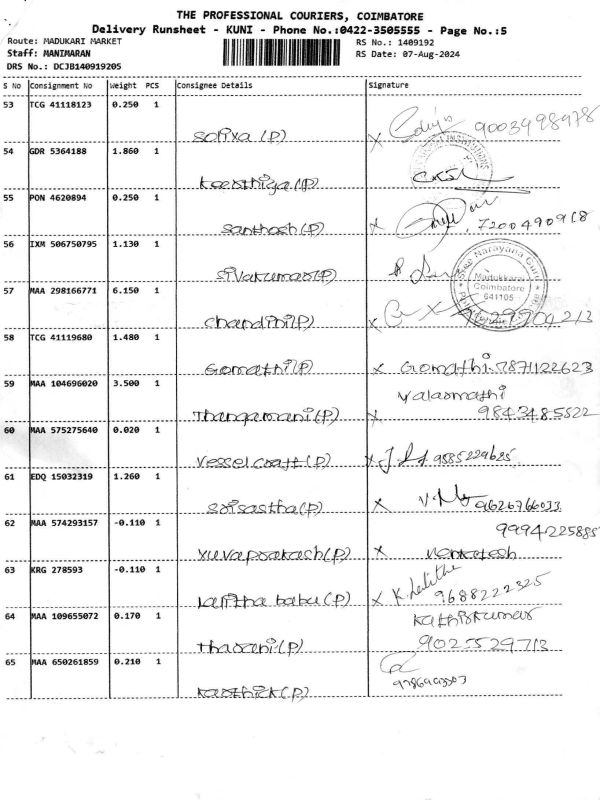 THE PROFESSIONAL COURIERS, COIMBATORE
Delivery Runsheet - KUNI - Phone No.:0422-3505555 - Page No.:5
Route: MADUKARI MARKET
RS No.: 1409192
Staff: MANIMARAN
RS Date: 07-Aug-2024
DRS No.: DCJB140919205
S No Consignment No Weight PCS Consignee Details Signature
53 TCG 41118123 0.250 1
Sofixa (P) x 9003498978
54 GDR 5364188 1.860 1
Keerthiga (P)
55 PON 4620894 0.250 1
Santhosh (P) x 7200490918
56 IXM 506750795 1.130 1
Sivakumar (P)
Sree Narayana Guru
Madukkarai
Coimbatore
641105
57 MAA 298166771 6.150 1
Chandini (P) x
58 TCG 41119680 1.480 1
Gomathi (P) x Gomathi. 7871122623
59 MAA 104696020 3.500 1
Valarmathi
Thangamani (P) x 9843485522
60 MAA 575275640 0.020 1
Vesselcraft (P) x 9585229625
61 EDQ 15032319 1.260 1
Srisastha (P) x 9626766033
62 MAA 574293157 -0.110 1
9994225885
Yuvaprakash (P) x Venkatesh
63 KRG 278593 -0.110 1
Lalitha babu (P) x K. Lalitha 9688222325
64 MAA 109655072 0.170 1
Kathirkumar
Tharani (P) 9025529713
65 MAA 650261859 0.210 1
Karthick (P)